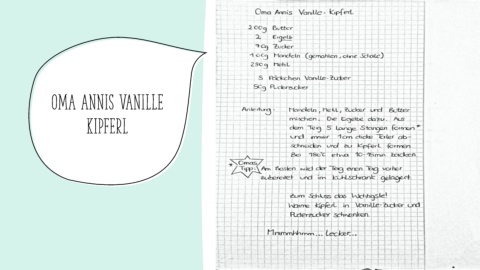 OMA ANNIS VANILLE
KIPFERL
Oma Annis Vanille-Kipferl
200g Butter
2 Eigelb
90g Zucker
100g Mandeln (gemahlen, ohne Schale)
250g Mehl
5 Päckchen Vanille-Zucker
50g Puderzucker
Anleitung: Mandeln, Mehl, Zucker und Butter
mischen. Die Eigelbe dazu. Aus
dem Teig 5 lange Stangen formen*
und immer 1cm dicke Teile ab-
schneiden und zu Kipferl formen.
Bei 180°C etwa 10-15min backen.
* Omas Tipp: Am besten wird der Teig einen Tag vorher
zubereitet und im Kühlschrank gelagert.
Zum Schluss das Wichtigste!
Warme Kipferl in Vanille-Zucker und
Puderzucker schwenken.
Mmmmhhmm... Lecker...